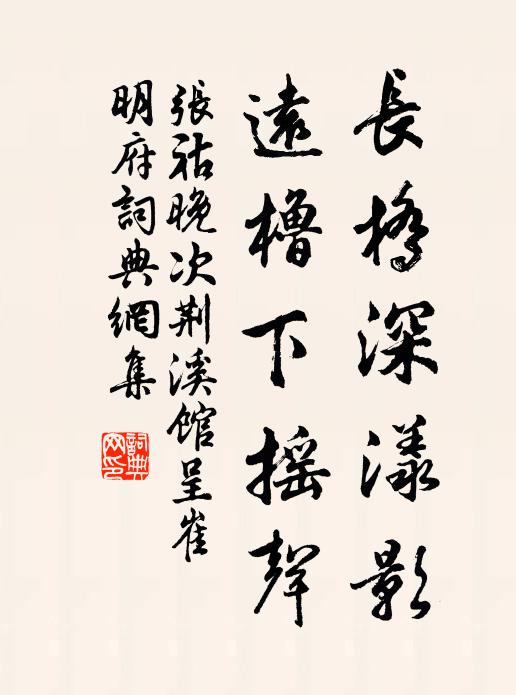 長橋深漾影
遠櫓下搖聲
張祜晚次荆溪館呈崔
明府詞典網集
詞典网印